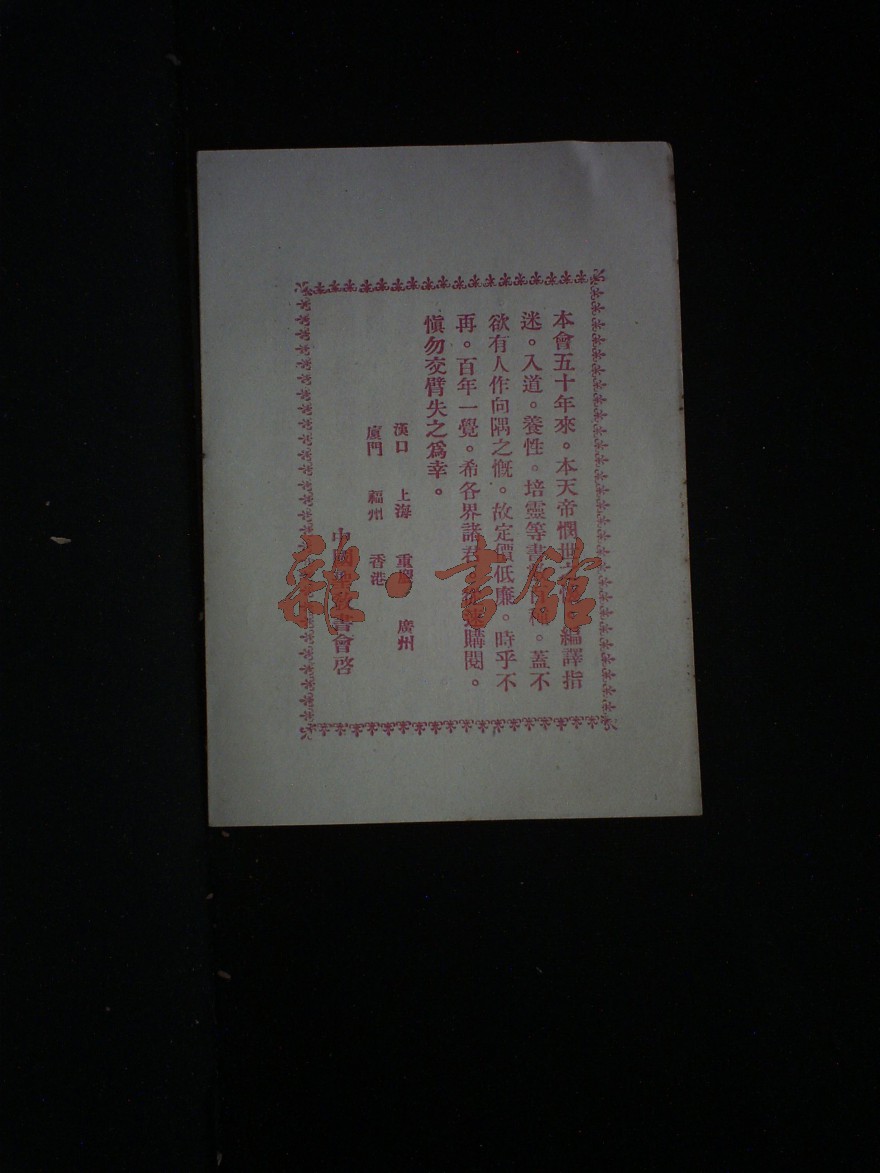 本會五十年來。本天帝憫世 編譯指
迷。入道。養性。培靈等書 種。蓋不
欲有人作向隅之慨。故定價低廉。時乎不
再。百年一覺。希各界諸君 購閱。
愼勿交臂失之爲幸。
漢口 上海 重慶 廣州
廈門 福州 香港
中國 書會啓
雜·書館